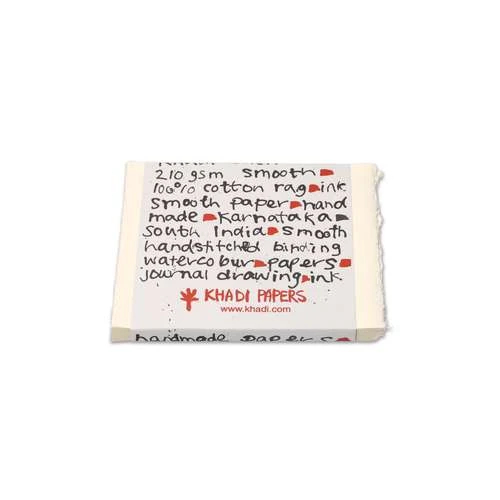 210 gsm smooth
100% cotton rag ink
smooth paper hand
made Karnataka
South India smooth
handstitched binding
watercolour papers
journal drawing ink
KHADI PAPERS
www.khadi.com
handmade papers